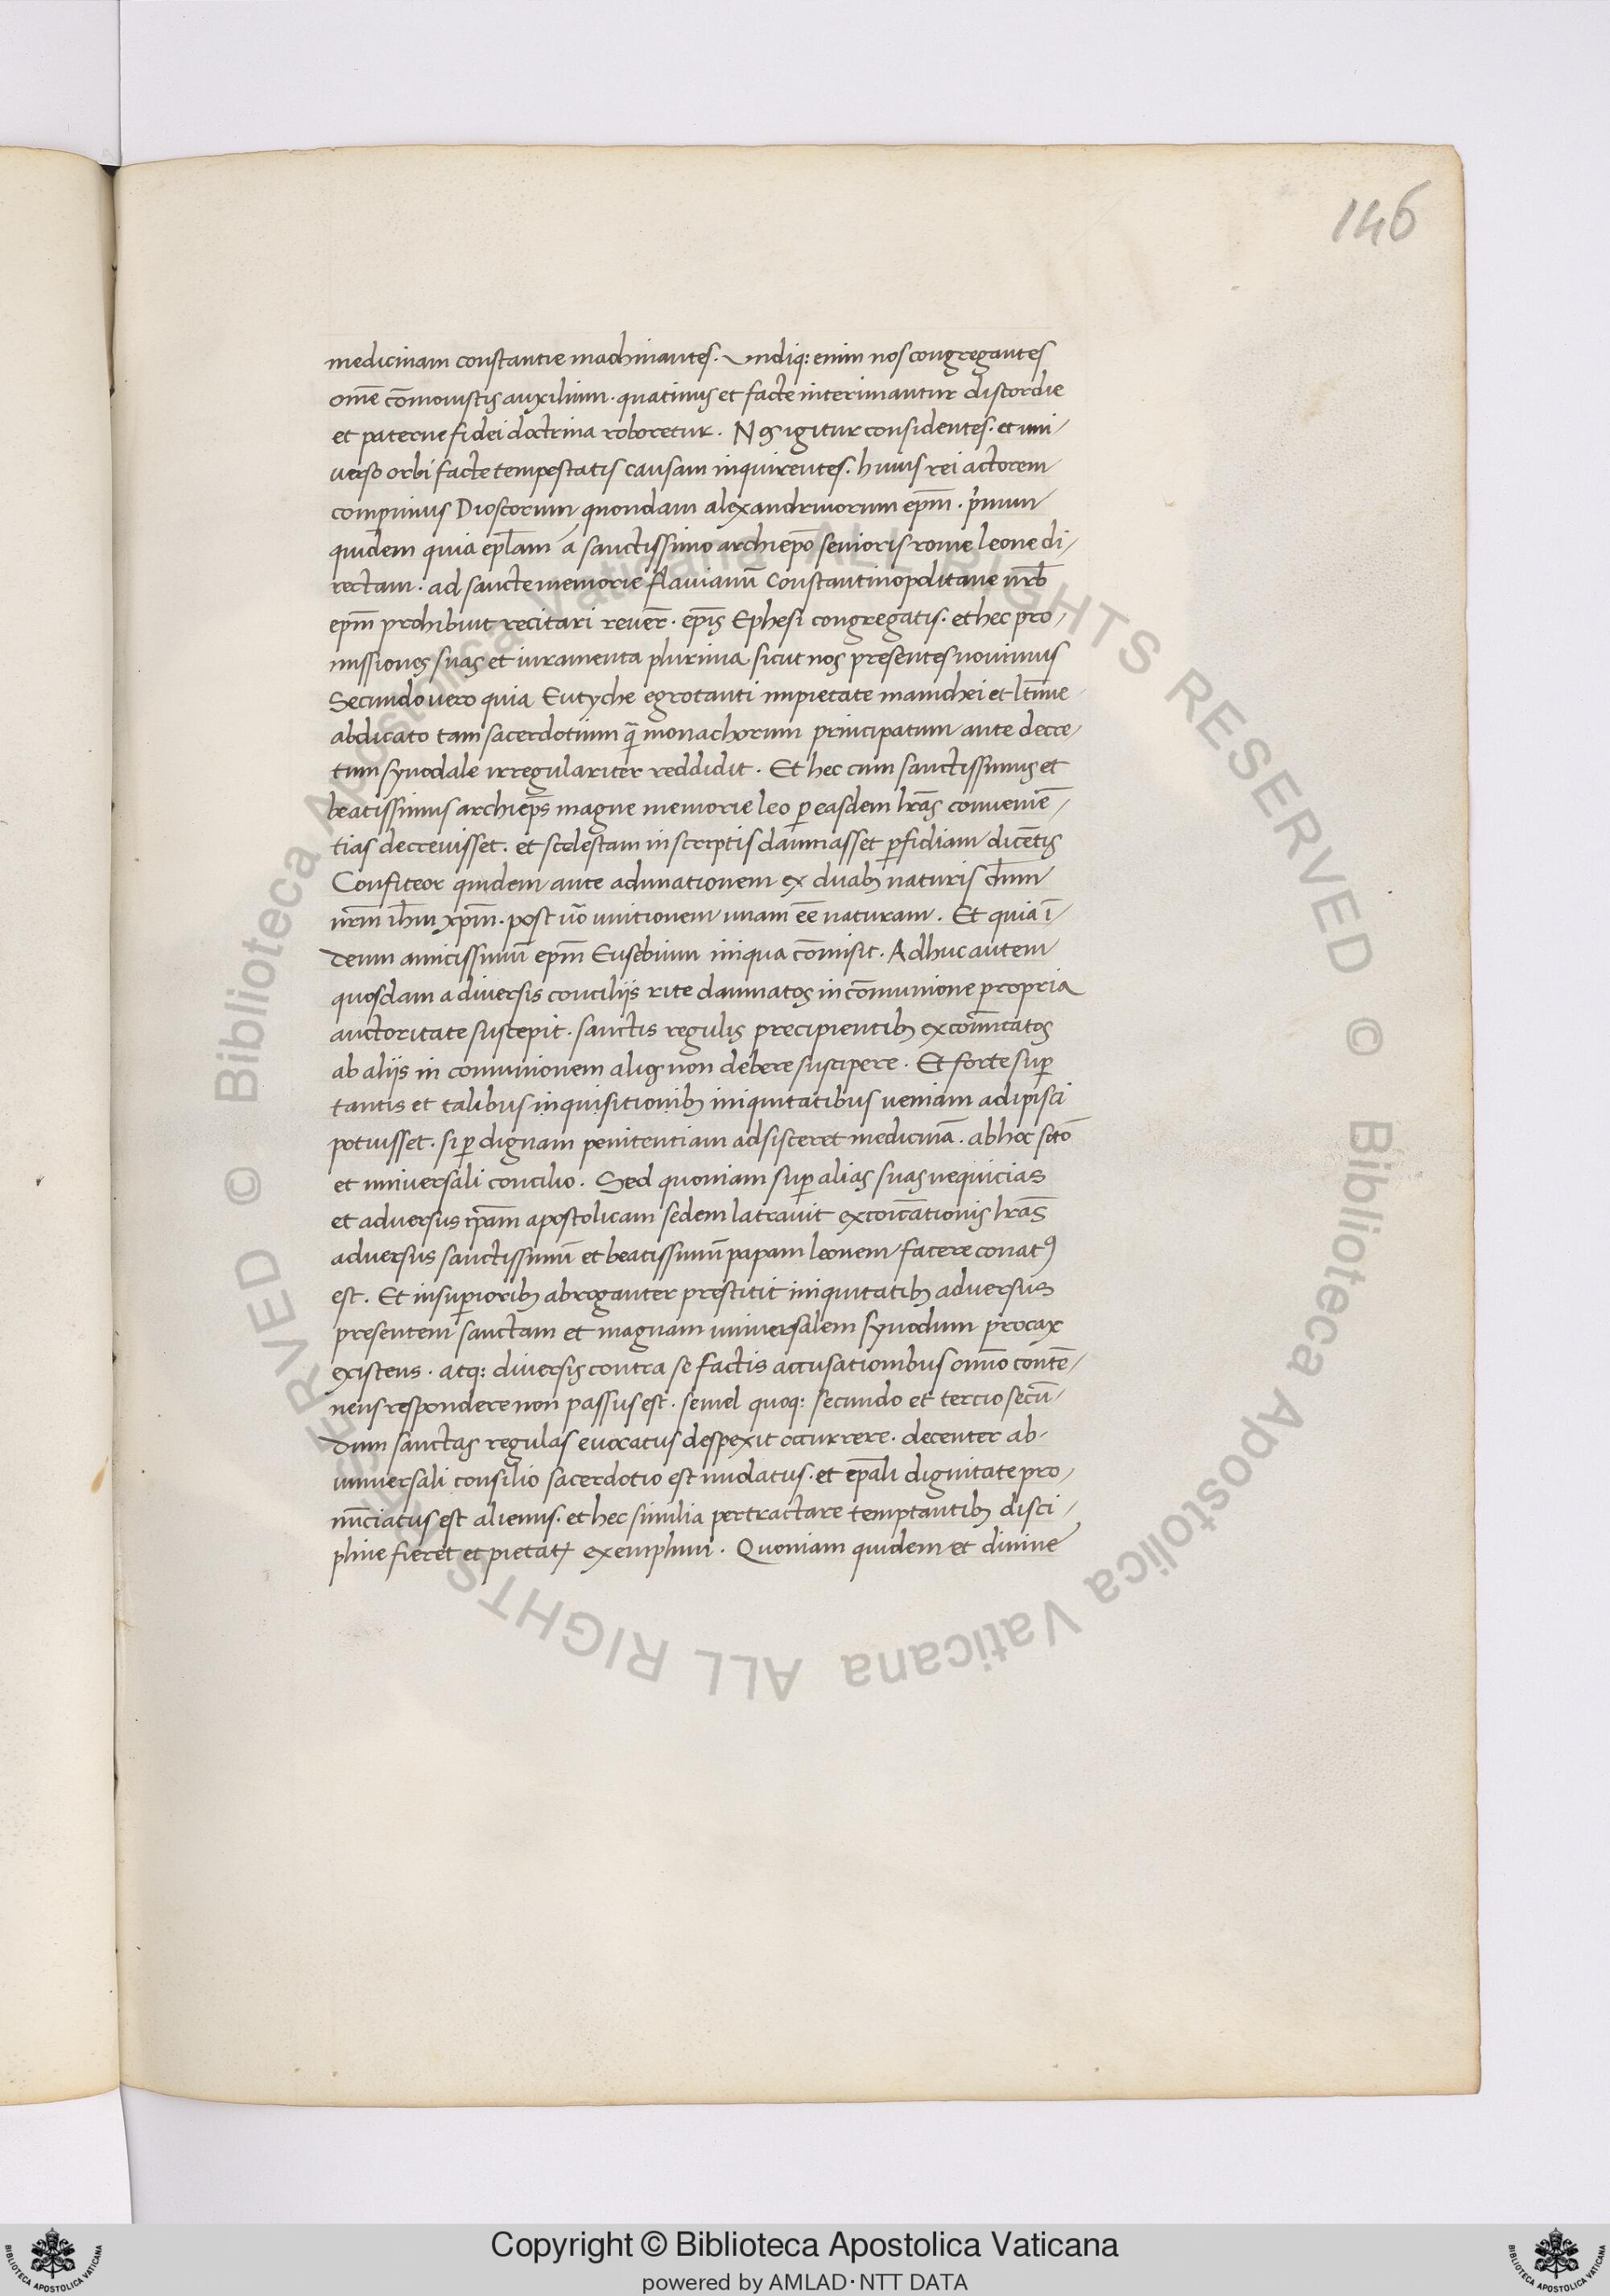 146
medicinam constantie machinantes. Undiq: enim nos congregantes
om̄e cōmovistis auxilium. quatinus et facte interimantur discordie
et paterne fidei doctrina roboretur. Nos igitur considentes. et uni-
verso orbi facte tempestatis causam inquirentes. huius rei actorem
comperimus Dioscorum quondam alexandrinorum ep̄m. p'mum
quidem quia epl̄am a sanctissimo archiep̄o senioris rome leone di-
rectam. ad sancte memorie flavianū Constantinopolitane urb̄
ep̄m prohibuit recitari rever̄. ep̄is Ephesi congregatis. et hec pro-
missiones suas et iuramenta plurima sicut nos presentes novimus
Secundo vero quia Eutyche egrotanti impietate manichei et lt̄ime
abdicato tam sacerdotium q̄ monachorum principatum ante decre-
tum synodale irregulariter reddidit. Et hec cum sanctissimus et
beatissimus archiep̄s magne memorie leo p̱ easdem lr̄as convenien̄-
tias decrevisset. et scelestam in scriptis damnasset p̱fidiam dicēt̄is
Confiteor quidem ante adunationem ex duab; naturis dn̄m
nr̄m ih̄m xp̄m. post ūo unitionem unam ēe naturam. Et quia ī-
deum amicissimū ep̄m Eusebium iniqua cōmisit. Adhuc autem
quosdam a diversis conciliis rite damnatos in cōmunione propria
auctoritate suscepit. sanctis regulis precipientib; excōm̄icatos
ab aliis in comunionem alios non debere suscipere. Et forte sup̱
tantis et talibus inquisitionib; iniquitatibus veniam adipisci
potuisset. si p̱ dignam penitentiam adsisceret medicinā. ab hoc sc̄tō
et universali concilio. Sed quoniam sup̱ alias suas nequicias
et adversus ip̄am apostolicam sedem latravit excōīcationis lr̄as
adversus sanctissimū et beatissimū papam leonem facere conatꝰ
est. Et in sup̱iorib; abroganter prestitit iniquitatib; adversus
presentem sanctam et magnam universalem synodum procax
existens. atq: diversis contra se factis accusationibus om̄io contē-
nens respondere non passus est. semel quoq: secundo et tercio secū-
dum sanctas regulas evocatus despexit occurrere. decenter ab-
universali consilio sacerdotio est nudatus. et ep̄ali dignitate pro-
nūciatus est alienus. et hec similia pertractare temptantib; disci-
pline fieret et pietatꝭ exemplum. Quoniam quidem et divine
© Biblioteca Apostolica Vaticana ALL RIGHTS RESERVED © Biblioteca Apostolica Vaticana ALL RIGHTS RESERVED
Copyright © Biblioteca Apostolica Vaticana
powered by AMLAD·NTT DATA
BIBLIOTECA APOSTOLICA VATICANA
BIBLIOTECA APOSTOLICA VATICANA